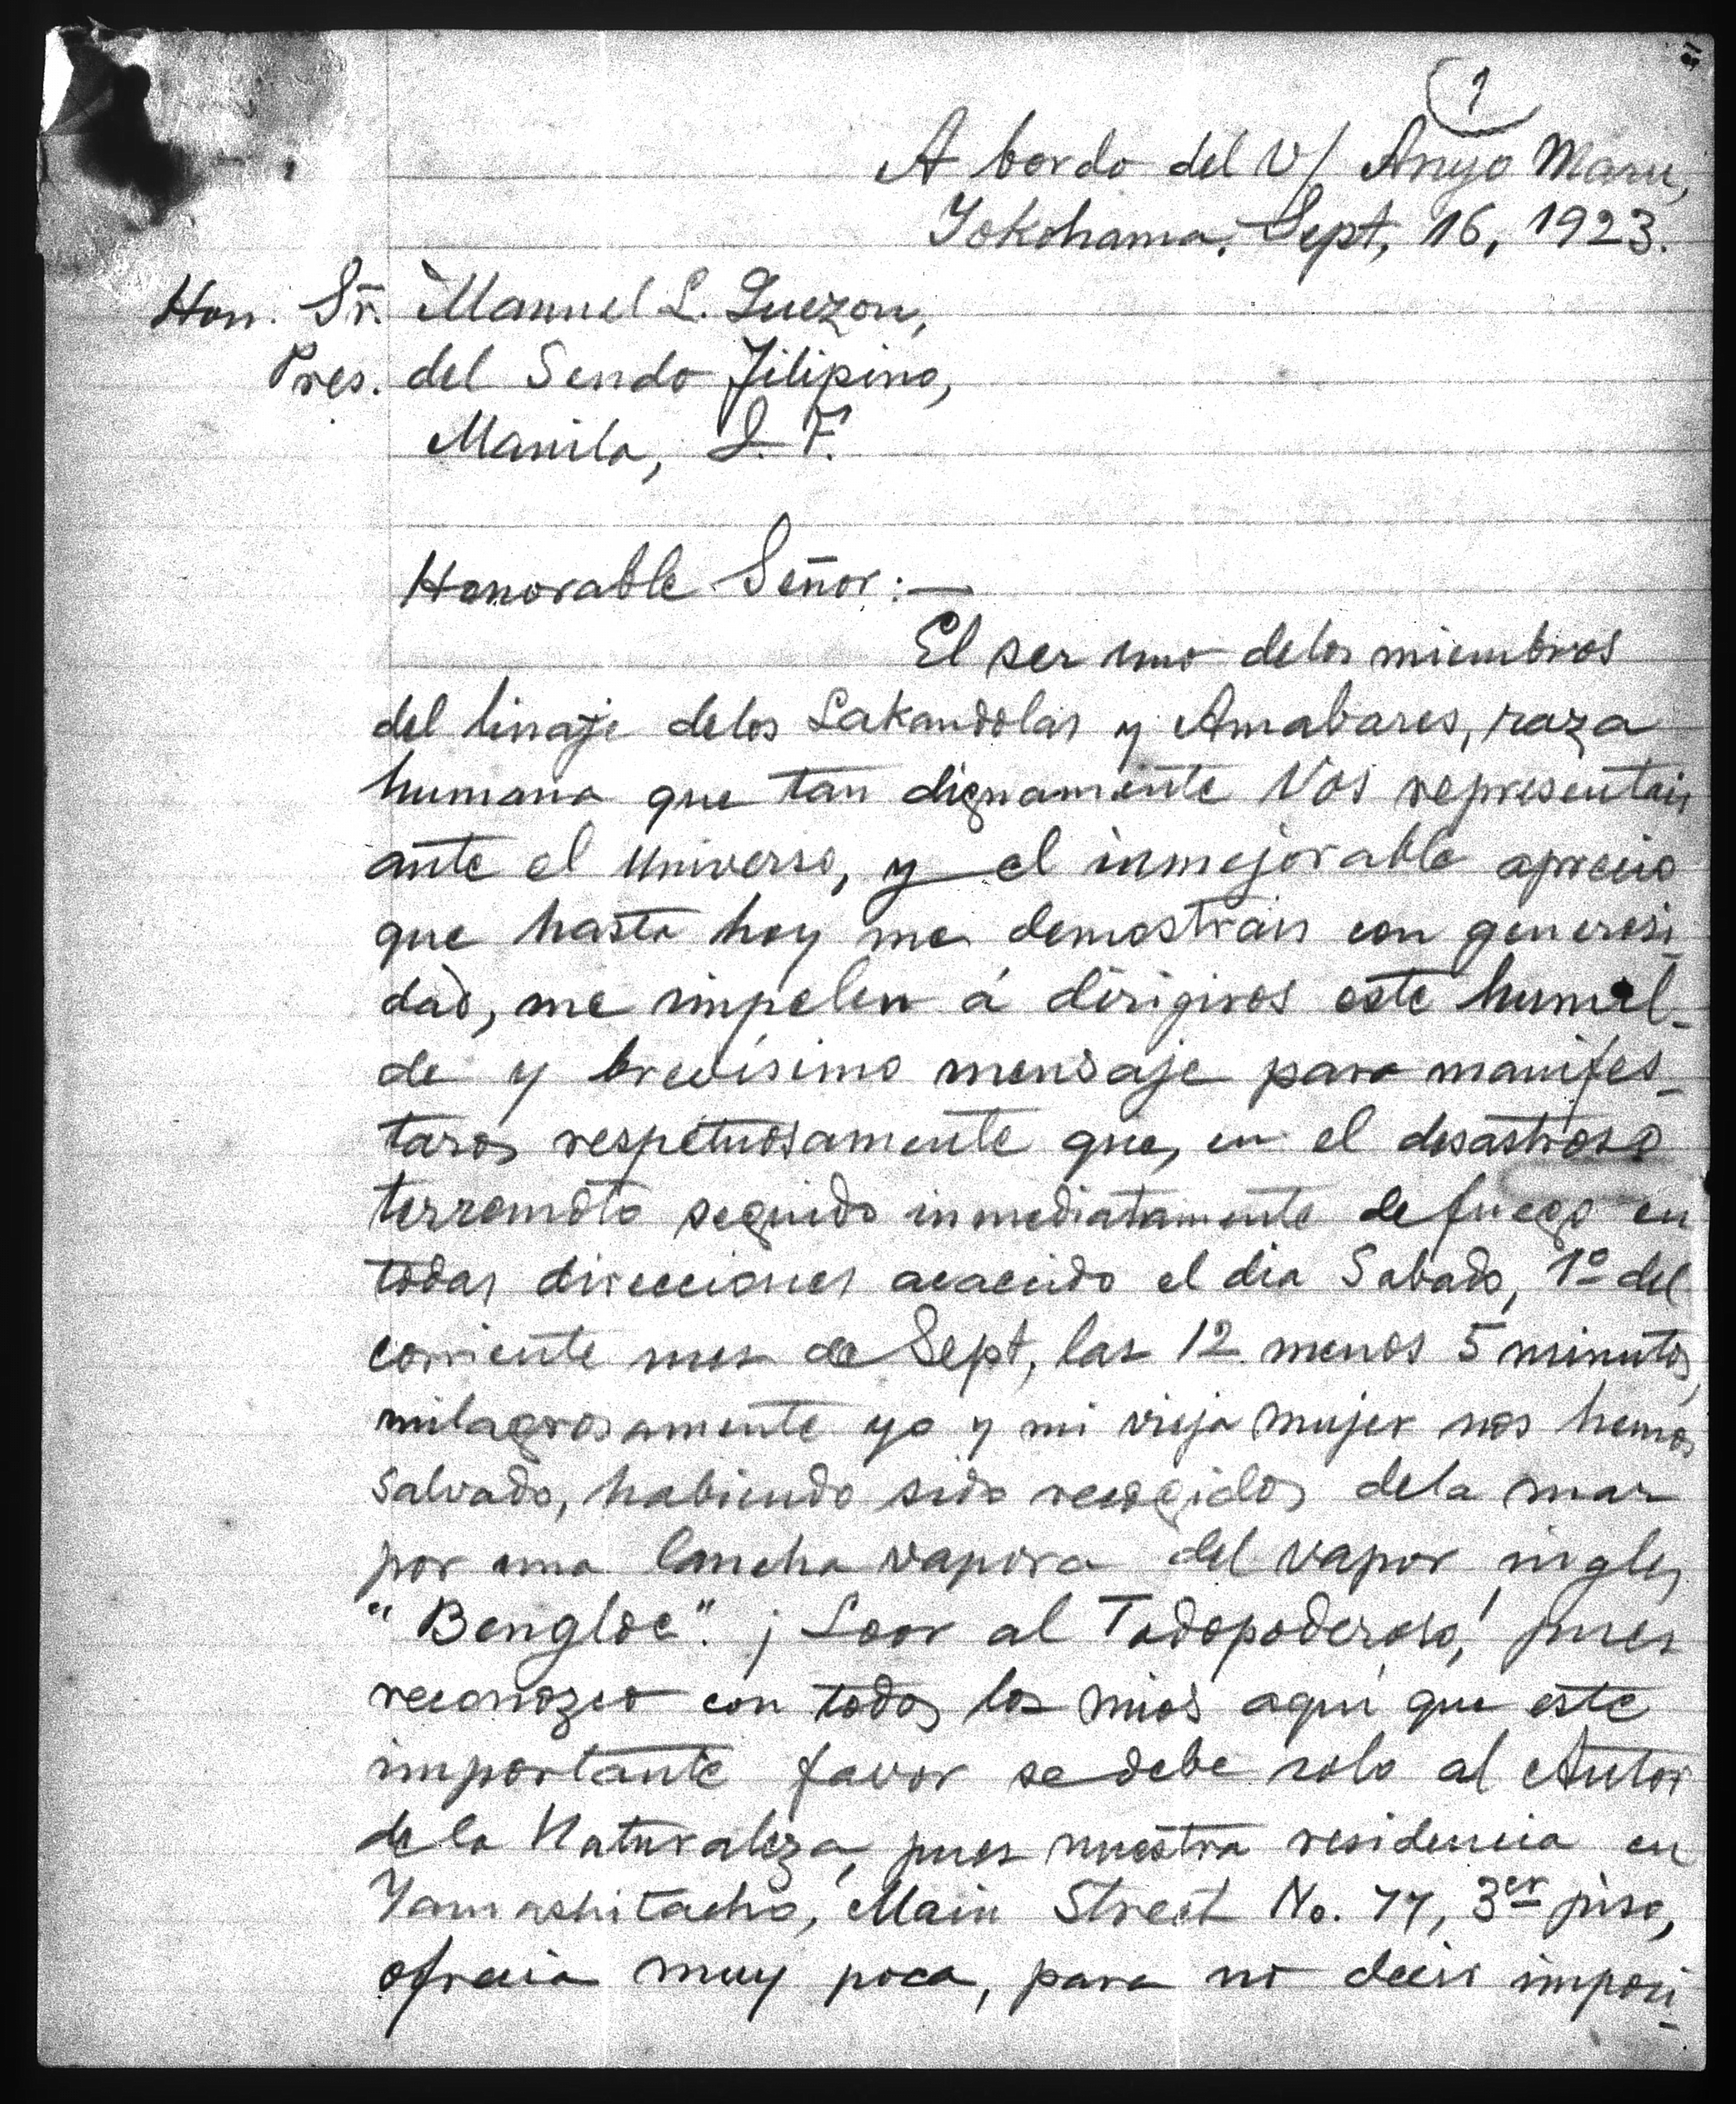 1
A bordo del V/ Anyo Maru,
Yokohama, Sept, 16, 1923.
Hon. Sr. Manuel L. Quezon,
Pres. del Sendo Filipino,
Manila, I. F.
Honorable Señor:—
El ser uno delos miembros
del linaje delos Lakandolas y Amabares, raza
humana que tan dignamente Vos representais
ante el Universo, y el inmejorable aprecio
que hasta hoy me demostrais con generosi-
dad, me impelen á dirigiros este humil-
de y brevísimo mensaje para manifes-
taros respetuosamente que, en el desastroso
terremoto seguido inmediatamente de fuego en
todas direcciones acaecido el dia Sabado, 1º del
corriente mes de Sept, las 12 menos 5 minutos,
milagrosamente yo y mi vieja mujer nos hemos
salvado, habiendo sido recogidos dela mar
por una lancha vapora del vapor ingles
"Bengloe". ¡Loor al Todopoderoso! pues
reconozco con todos los mios aquí que este
importante favor se debe solo al Autor
de la Naturaleza, pues nuestra residencia en
Yamashitacho, Main Street No. 77, 3er piso,
ofrecia muy poca, para no decir imposi-